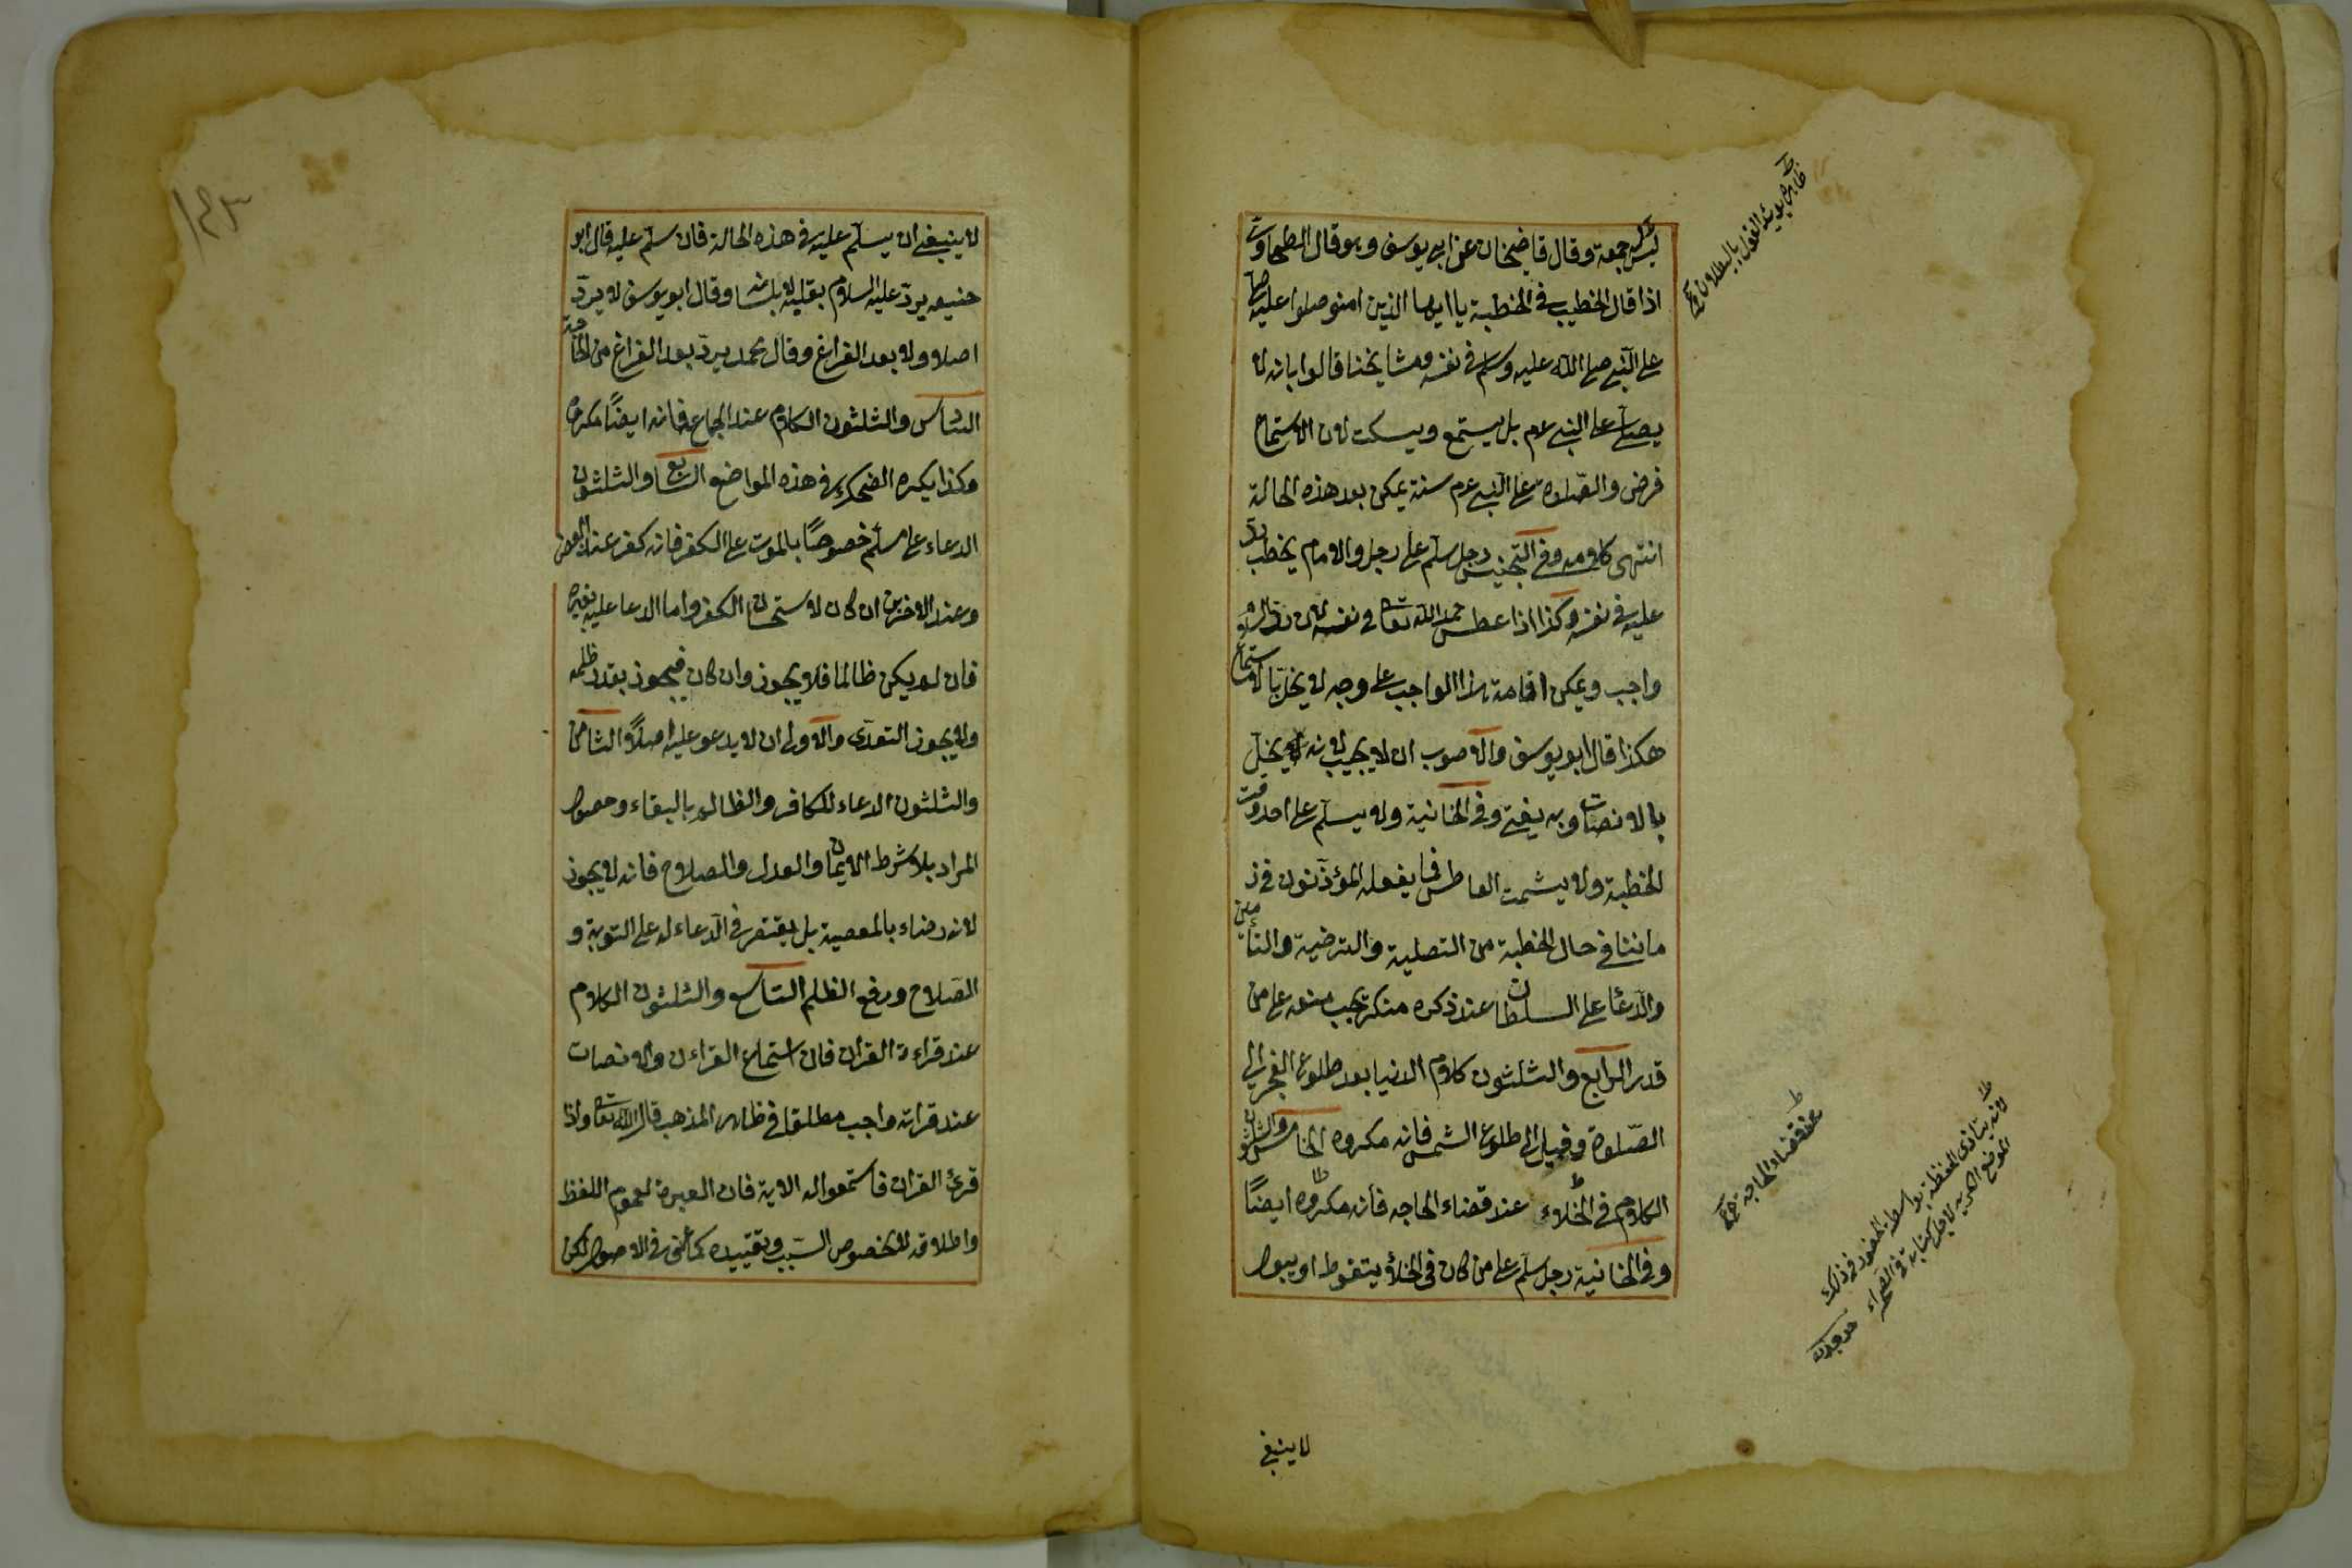 ليس بجمعة وقال قاضيخان عن ابي يوسف وهو قال الطحاوي
اذا قال الخطيب في الخطبة يا ايها الذين امنو صلوا عليه صلى
على النبي صلى الله عليه وسلم في نفسه ومشايخنا قالوا بانه لا
يصلي على النبي عم بل يستمع ويسكت لان الاستماع
فرض والصلوة على النبي عم سنة يمكن بعد هذه الحالة
انتهى كلامه وفي التجنيس رجل سلم على رجل والامام يخطب يرد
عليه في نفسه وكذا اذا عطس حمد الله تعا في نفسه لان رد السلام
واجب ويمكن اقامة هذا الواجب على وجه لا يخل بالاستماع
هكذا قال ابو يوسف والاصوب ان لا يجيب لانه يخل
بالانصات وبه يفتي وفي الخانية ولا يسلم على احد وقت
الخطبة ولا يشمت العاطس فما يفعله المؤذنون في ز
ماننا في حال الخطبة من التصلية والترضية والتأمين
والدعا على السلطان عند ذكره منكر يجب منعه على من
قدر الرابع والثلثون كلام الدنيا بعد طلوع الفجر الى
الصلوة وقيل الى طلوع الشمس فانه مكروه الخامس والثلثون
الكلام في الخلاء عند قضاء الحاجه فانه مكروه ايضًا
وفي الخانية رجل سلم على من كان في الخلأ يتغوط او يبول
لا ينبغي
عند قضاء الحاجة
لا ينبغي ان يسلم عليه في هذه الحالة فان سلم عليه قال ابو
حنيفه يرد عليه السلام بقلبه لا بلسانه وقال ابو يوسف لا يرد
اصلا ولا بعد الفراغ وقال محمد يرد بعد الفراغ من الحاجة
السادس والثلثون الكلام عند الجماع فانه ايضًا مكروه
وكذا يكره الضحك في هذه المواضع السابع والثلثون
الدعاء على مسلم خصوصًا بالموت على الكفر فانه كفر عند البعض
وعند الاخرين ان كان لاستحسان الكفر واما الدعا عليه بغيره
فان لم يكن ظالما فلا يجوز وان كان فيجوز بقدر ظلمه
ولا يجوز التعدى والاولى ان لا يدعو عليه اصلًا الثامن
والثلثون الدعاء للكافر والظالم بالبقاء وحصول
المراد بلا شرط الايمان والعدل والصلاح فانه لا يجوز
لانه رضاء بالمعصية بل يقتصر في الدعاء له على التوبة و
الصلاح ورفع الظلم التاسع والثلثون الكلام
عند قراءة القران فان استماع القراءن والانصات
عند قراته واجب مطلقا في ظاهر المذهب قال الله تعا واذا
قرئ القران فاستمعوا له الاية فان العبرة لعموم اللفظ
واطلاقه لا لخصوص السبب وتقييده كما عرف في الاصول لكن